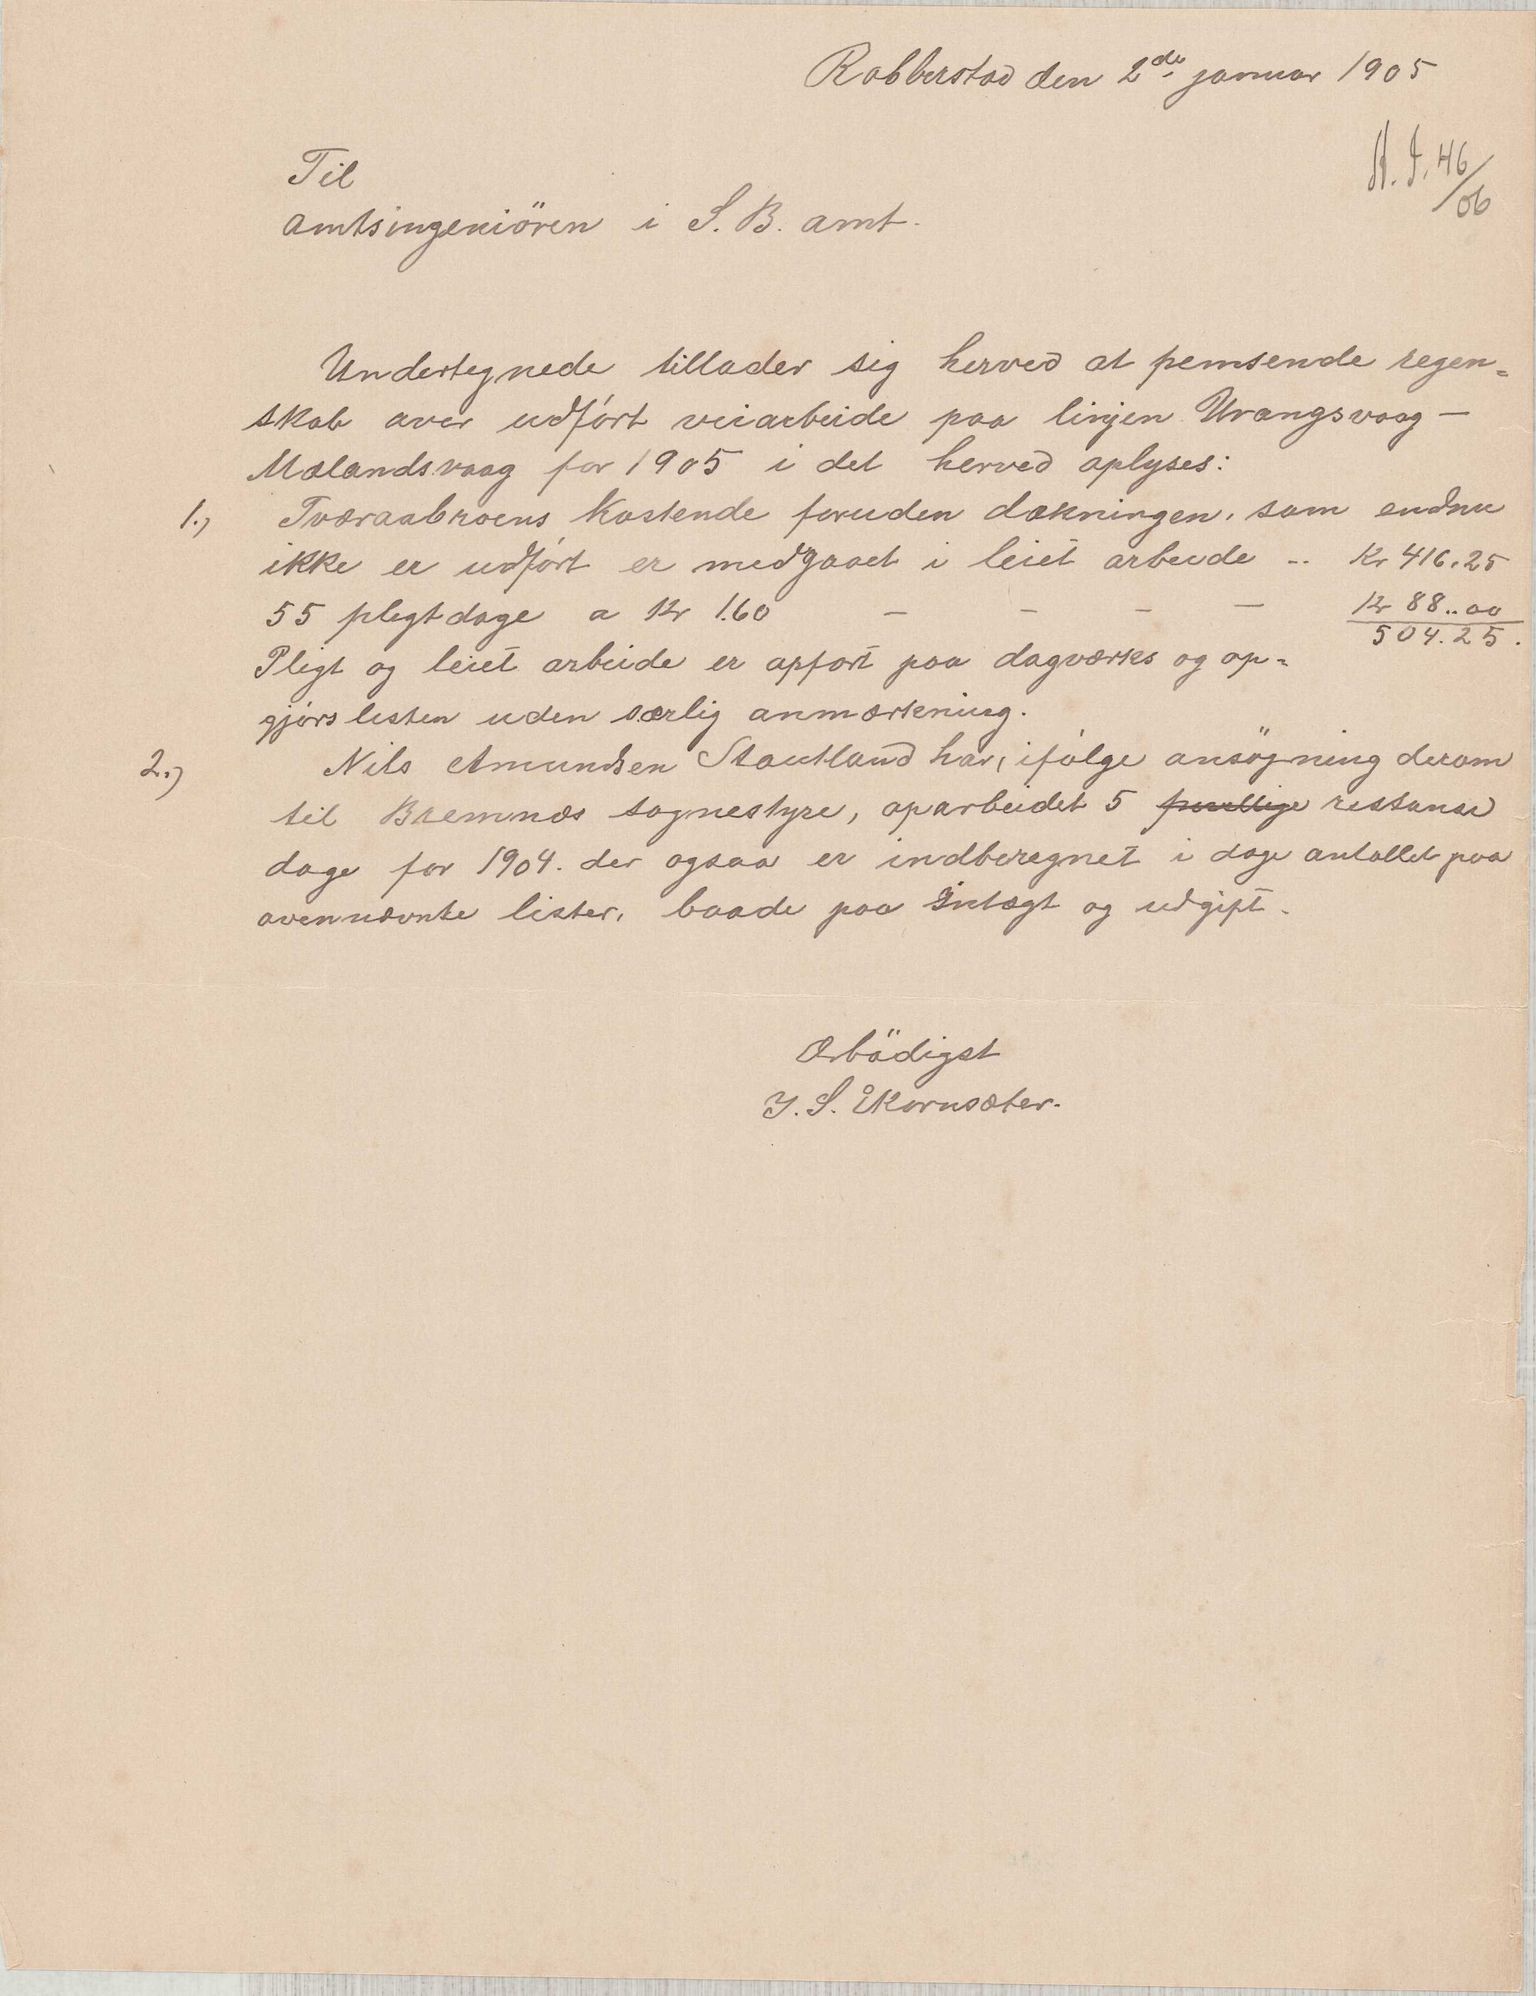 Rabberstad den 2de januar 1905
A. I. 46/06
Til
amtsingeniören i S. B. amt.
Undertegnede tillader sig herved at pemsende regen=
skab over udført veiarbeide paa linjen Urangsvaag –
Mælandsvaag for 1905 i det herved oplyses:
1.) Tværaabroens kostende foruden dækningen, som endnu
ikke er udført er medgaaet i leiet arbeide .. Kr 416.25
55 pligtdage a Kr 1.60 – – – – Kr 88..00
504.25.
Pligt og leiet arbeide er opført paa dagværks og op=
gjørs listen uden særlig anmærkning.
2.) Nils Amundsen Stautland har, ifølge ansögning derom
til Bremnæs sognestyre, oparbeidet 5 restanse
dage for 1904. der ogsaa er indberegnet i dage antallet paa
ovennævnte lister, baade paa Intægt og udgift.
Ærbödigst
J. S. Ekornsæter.